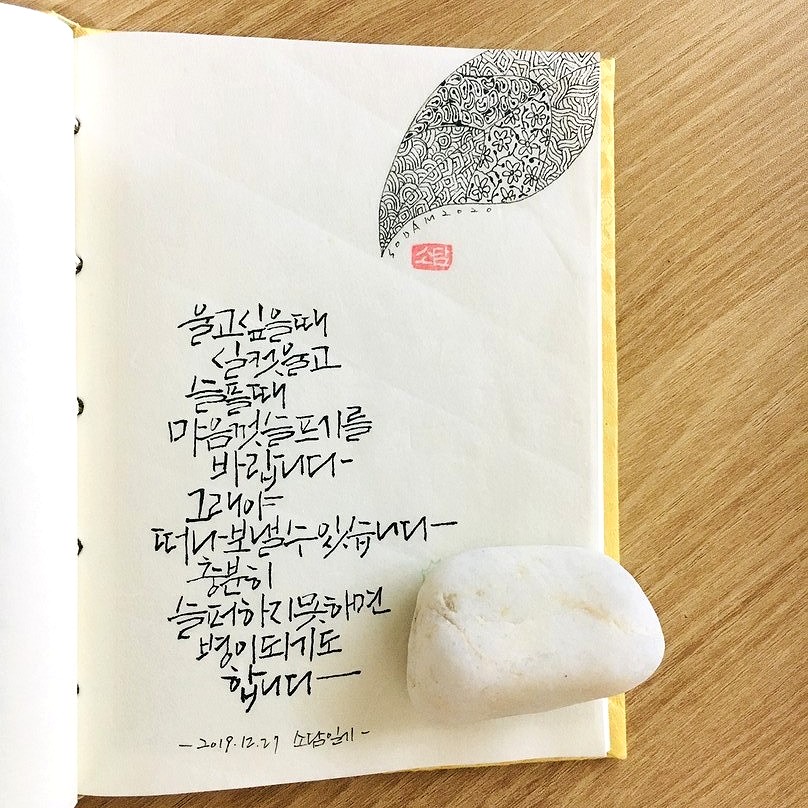 SODAM2020
소담
울고싶을때
실컷울고
슬플때
마음껏슬프기를
바랍니다-
그래야
떠나보낼수있습니다-
충분히
슬퍼하지못하면
병이되기도
합니다-
-2019.12.27 소담일기-